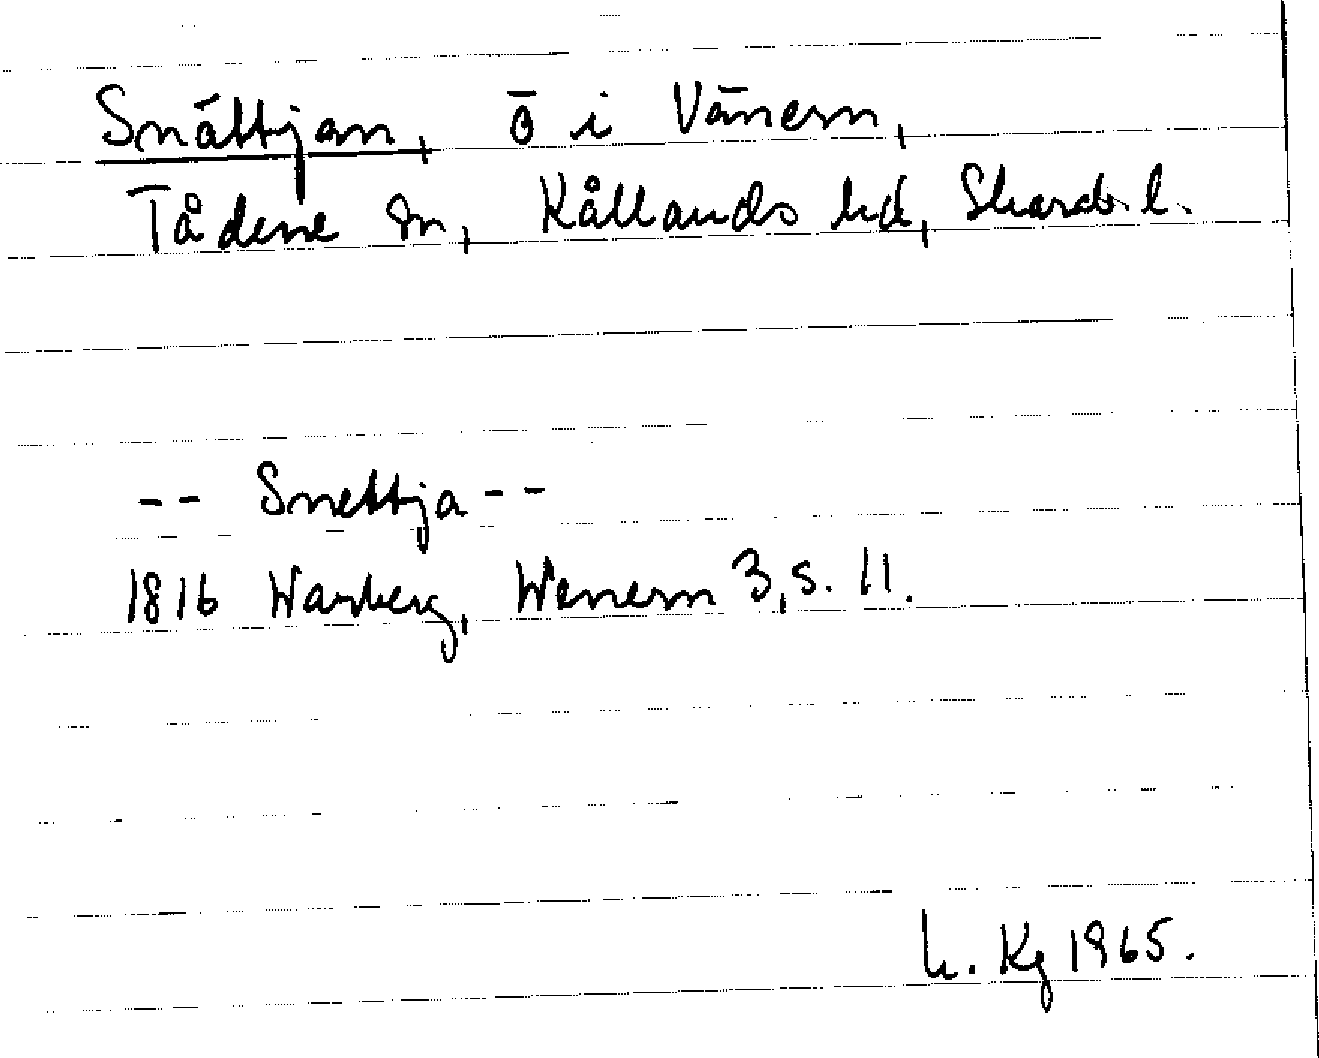 Snättjan, ö i Vänern,
Tådene sn, Kållands hd, Skarab. l.
-- Snettja --
1816 Warberg, Wenern 3, s. 11.
L. Kg 1965.